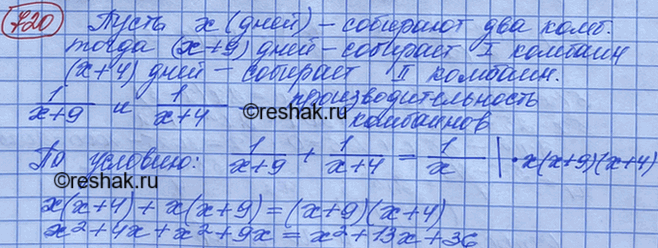 720 Пусть x (дней) – собирают два комб.
тогда (x+9) дней – собирает I комбайн
(x+4) дней – собирает II комбаин.
1/(x+9) и 1/(x+4) производительность комбаинов
©reshak.ru
©reshak.ru
По условию: 1/(x+9) + 1/(x+4) = 1/x | · x(x+9)(x+4)
©reshak.ru
x(x+4) + x(x+9) = (x+9)(x+4)
x² + 4x + x² + 9x = x² + 13x + 36